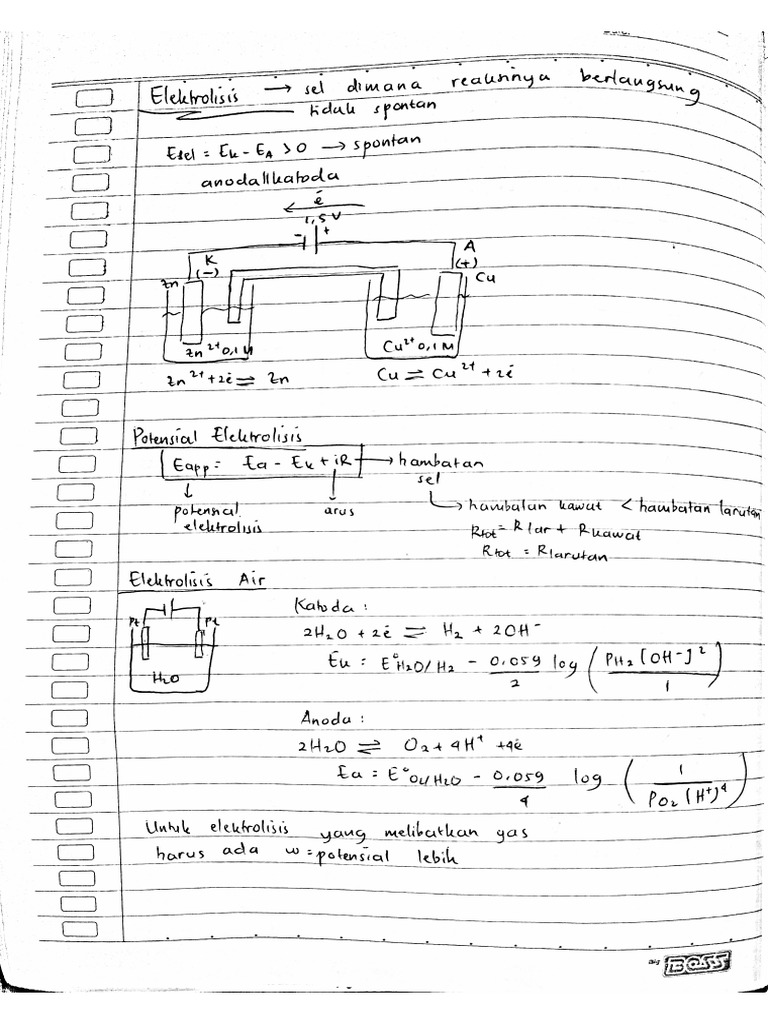 Elektrolisis → sel dimana reaksinya berlangsung
tidak spontan
Esel = Ek - EA > 0 → spontan
anoda||katoda
ē
1,5 V
- +
K A
(-) (+)
Zn Cu
Zn²⁺ 0,1 M Cu²⁺ 0,1 M
Zn²⁺ + 2ē ⇌ Zn Cu ⇌ Cu²⁺ + 2ē
Potensial Elektrolisis
Eapp = Ea - Ek + iR → hambatan
sel
potensial arus
elektrolisis
hambatan kawat < hambatan larutan
Rtot = Rlar + Rkawat
Rtot = Rlarutan
Elektrolisis Air
Pt Pt
H2O
Katoda :
2H2O + 2ē ⇌ H2 + 2OH⁻
Ek = E°H2O/H2 - 0.059/2 log (PH2 [OH-]²/1)
Anoda :
2H2O ⇌ O2 + 4H⁺ + 4ē
Ea = E°O2/H2O - 0.059/4 log (1/PO2 (H⁺)⁴)
Untuk elektrolisis yang melibatkan gas
harus ada w = potensial lebih
Big BOSS